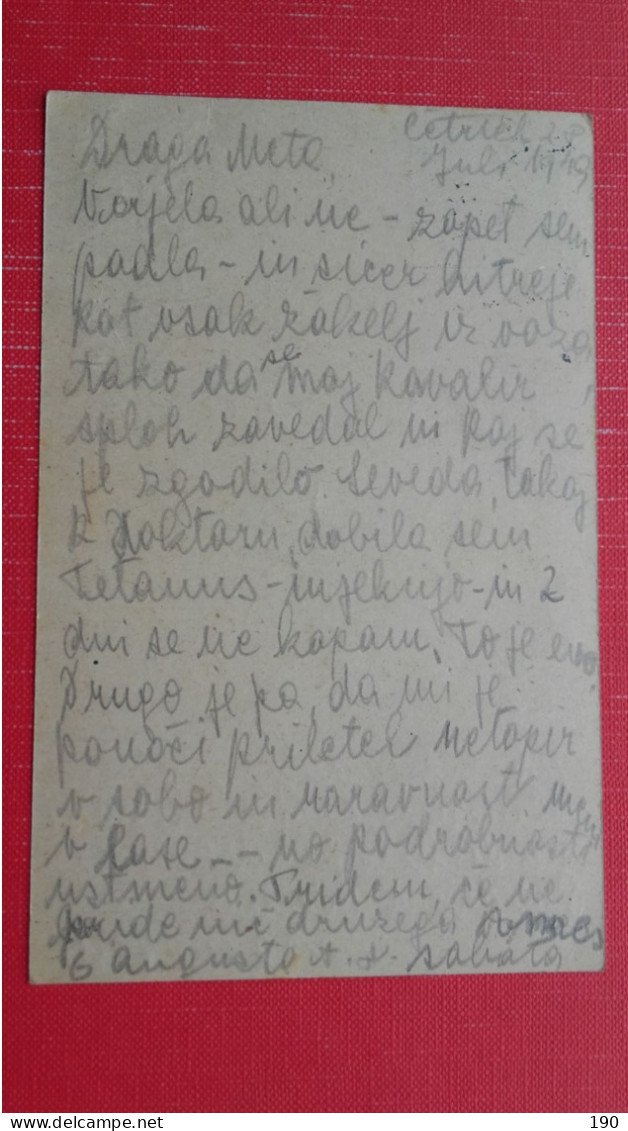 Četrtek 28
Draga Meta, Juli 1949
Verjela ali ne - zopet sem
padla - in sicer hitreje
kot vsak žakelj iz voza
tako da se moj kavalir
sploh zavedal ni kaj se
je zgodilo. Seveda takoj
k Doktorju, dobila sem
Tetanus-injekcijo - in 2
dni se ne kopam. To je eno.
Drugo je pa, da mi je
ponoči priletel netopir
v sobo in naravnost
v lase - - no podrobnosti
ustmeno. Pridem, če ne
pride nič drugega
6 augusta t. l. sobota
190